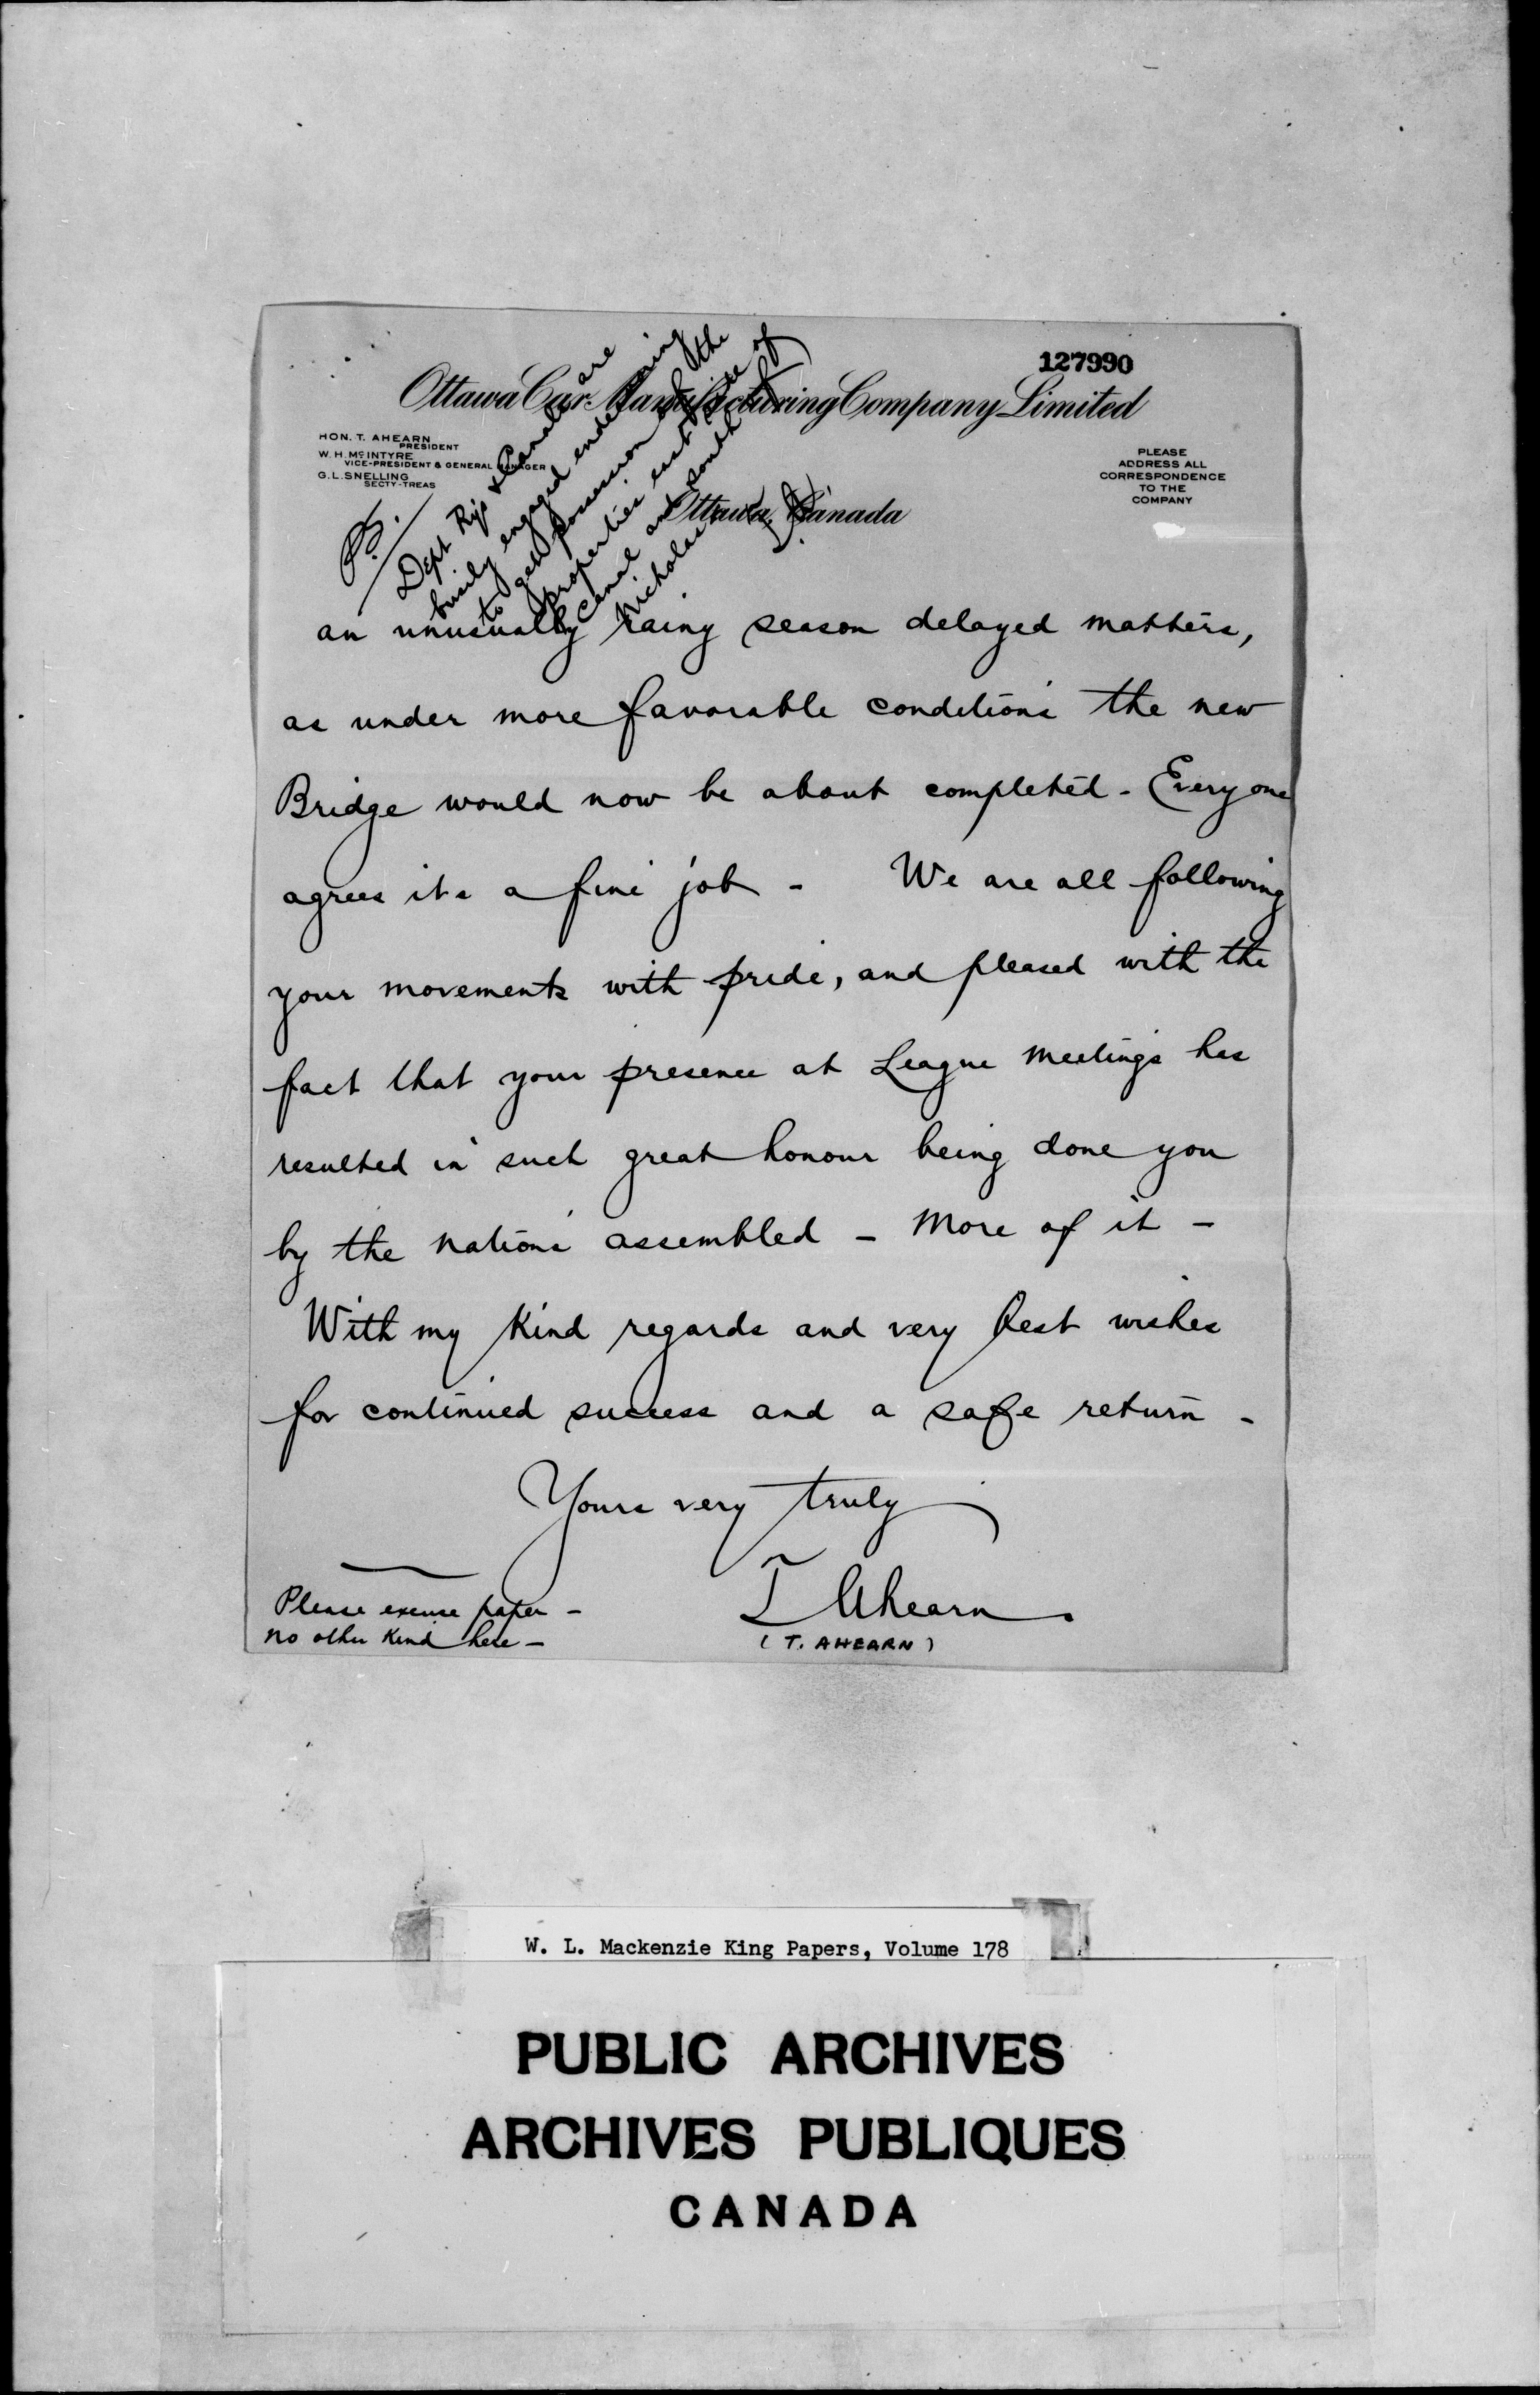 127990
Ottawa Car Manufacturing Company Limited
HON. T. AHEARN
PRESIDENT
W. H. McINTYRE
VICE-PRESIDENT & GENERAL MANAGER
G. L. SNELLING
SECTY-TREAS
PLEASE
ADDRESS ALL
CORRESPONDENCE
TO THE
COMPANY
Ottawa, Canada
P.S.
Dept Rys & Canals are
busily engaged endeavoring
to get possession of the
properties east side of
Canal and south of
Nicholas St.
T.A.
an unusually rainy season delayed matters,
as under more favorable conditions the new
Bridge would now be about completed - Everyone
agrees its a fine job - We are all following
your movements with pride, and pleased with the
fact that your presence at League meetings has
resulted in such great honour being done you
by the nations assembled - More of it -
With my Kind regards and very best wishes
for continued success and a safe return -
Yours very truly
T Ahearn
(T. AHEARN)
Please excuse paper -
no other Kind here -
W. L. Mackenzie King Papers, Volume 178
PUBLIC ARCHIVES
ARCHIVES PUBLIQUES
CANADA